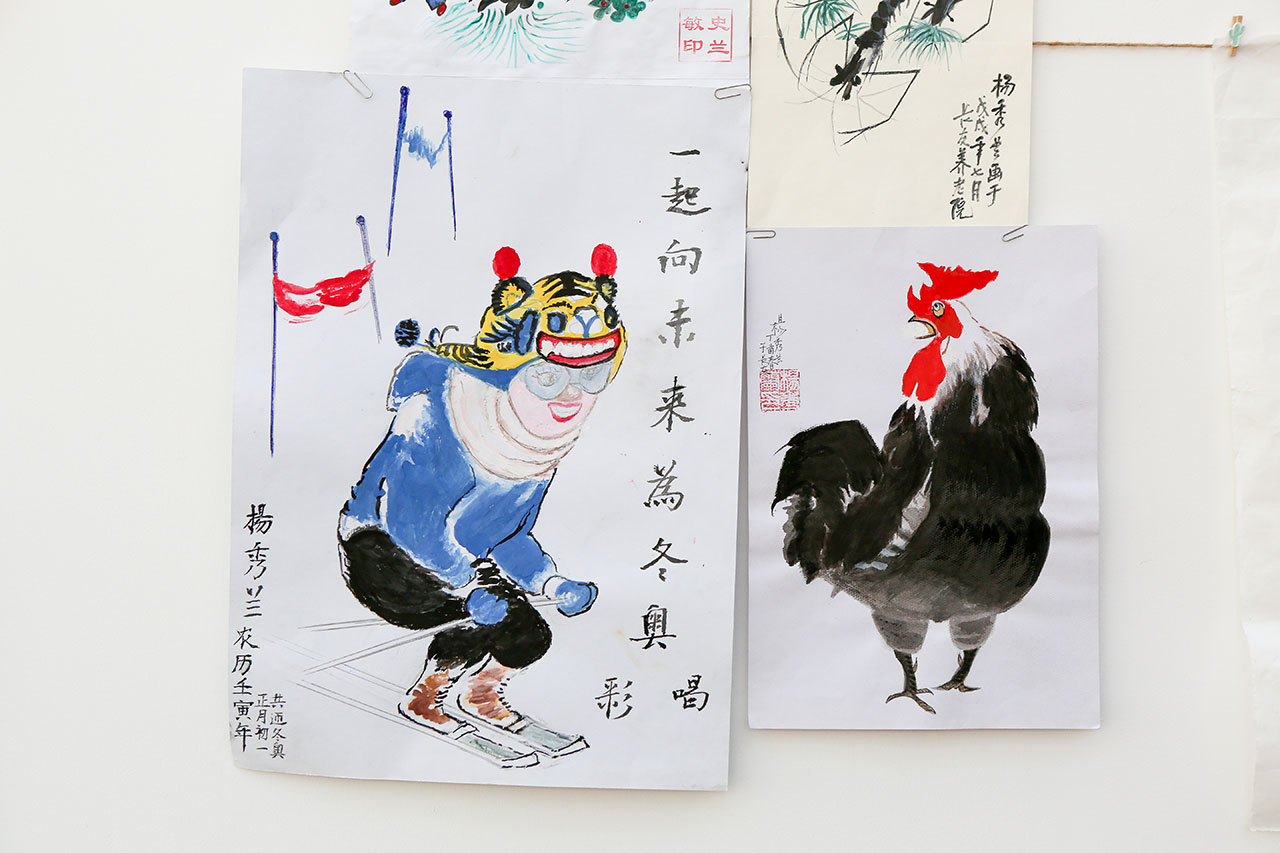 史兰
敏印
杨秀兰画于
戊戌年七月
长友养老院
一起向未来為冬奥
喝
彩
楊秀兰农历壬寅年
正月初一
共迎冬奥
杨秀兰